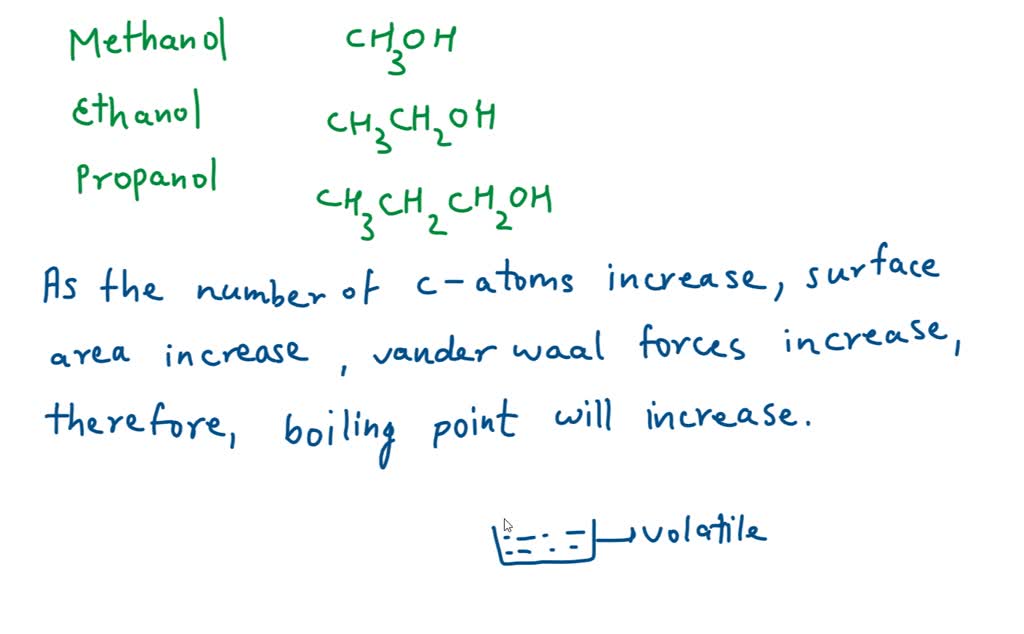 Methanol CH3OH
Ethanol CH3CH2OH
Propanol CH3CH2CH2OH
As the number of c-atoms increase, surface
area increase, vander waal forces increase,
therefore, boiling point will increase.
volatile